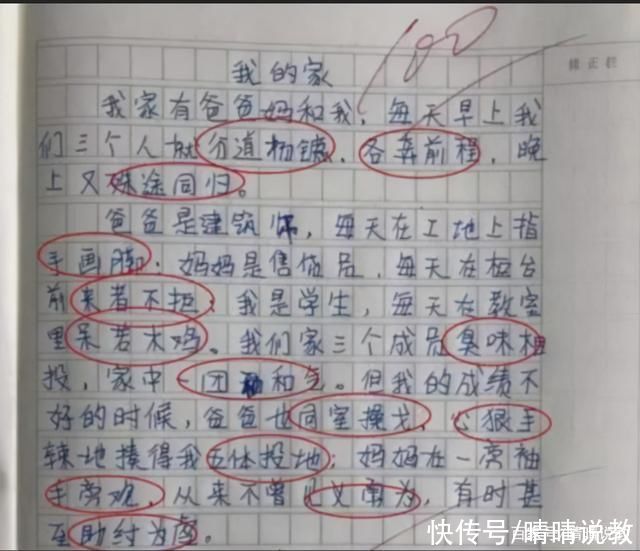 100
我的家
修正栏
我家有爸爸妈和我，每天早上我
们三个人就分道扬镳，各奔前程，晚
上又殊途同归。
爸爸是建筑师，每天在工地上指
手画脚；妈妈是售货员，每天在柜台
前来者不拒；我是学生，每天在教室
里呆若木鸡。我们家三个成员臭味相
投，家中一团和气。但我的成绩不
好的时候，爸爸也同室操戈，心狠手
辣地揍得我五体投地；妈妈在一旁袖
手旁观，从来不曾见义勇为，有时甚
至助纣为虐。
快传号/晴晴说教